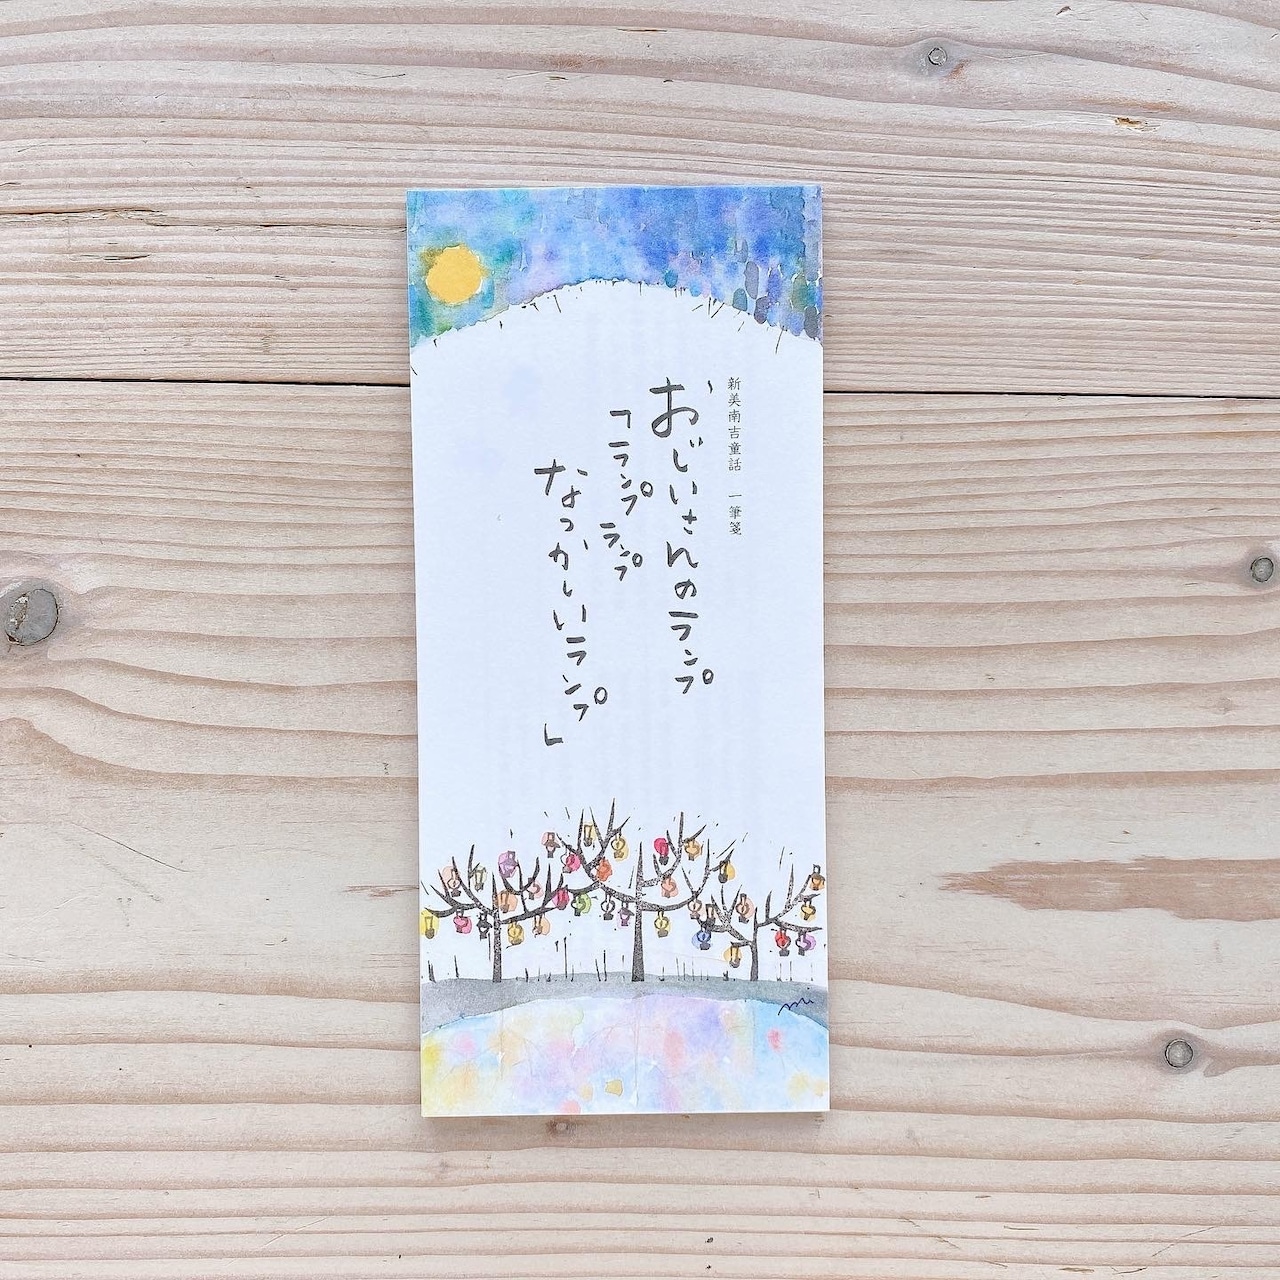 新美南吉童話 一筆箋
おじいさんのランプ
「ランプ ランプ
なつかしいランプ」
mi